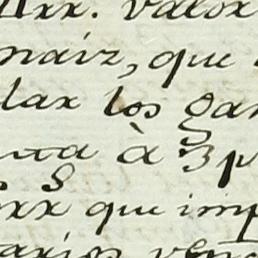 Arx. valox
naiz, que
lax los gan
uta à 3 p
oxx que imp